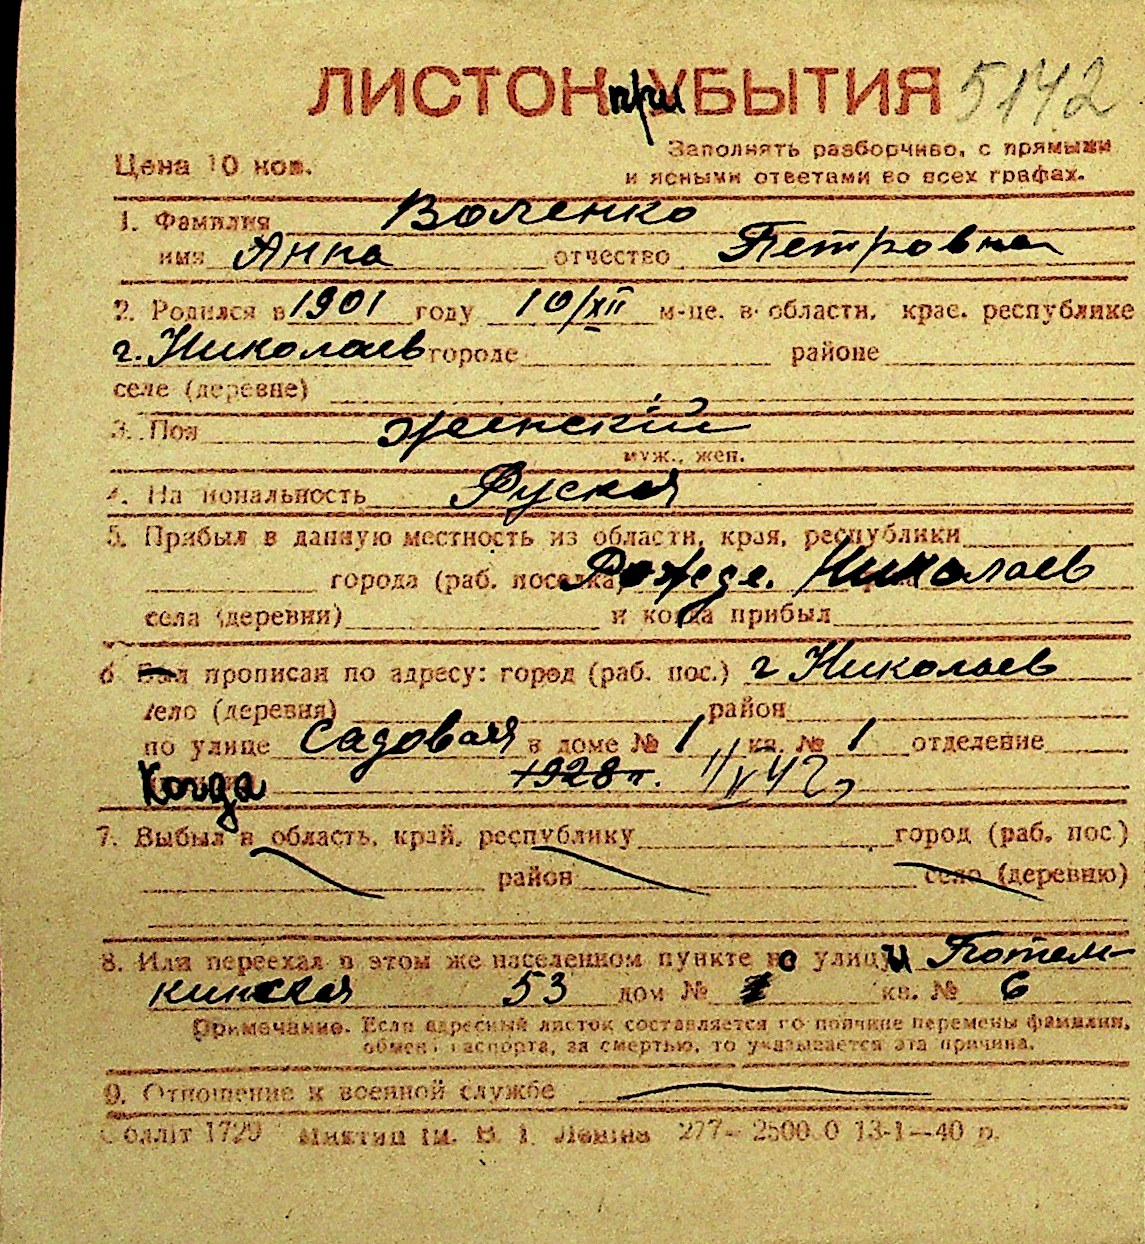 ЛИСТОК при УБЫТИЯ 5142
Цена 10 коп.
Заполнять разборчиво, с прямыми
и ясными ответами во всех графах.
1. Фамилия Воленко
имя Анна отчество Петровна
2. Родился в 1901 году 10/XII м-це, в области, крае, республике
г. Николаев городе районе
селе (деревне)
3. Пол женский
муж., жен.
4. Национальность Руская
5. Прибыл в данную местность из области, края, республики
города (раб. поселка) Рожде. Николаев
села (деревни) и когда прибыл
6 Был прописан по адресу: город (раб. пос.) г Николаев
село (деревня) район
по улице Садовая в доме № 1 кв. № 1 отделение
Когда 1928 г. 11/V 42
7. Выбыл в область, край, республику город (раб. пос.)
район село (деревню)
8. Или переехал в этом же населенном пункте по улицы Потем-
кинская 53 дом № кв. № 6
Примечание. Если адресный листок составляется по причине перемены фамилии,
обмен паспорта, за смертью, то указывается эта причина.
9. Отношение к военной службе
Облліт 1729 Миктип ім. В. І. Леніна 277— 2500 0 13-1—40 р.